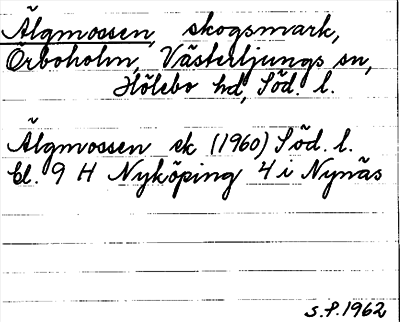 Älgmossen, skogsmark,
Örboholm, Västerljungs sn,
Hölebo hd, Söd. l.
Älgmossen ek (1960) Söd. l.
bl. 9 H Nyköping 4 i Nynäs
S.P. 1962